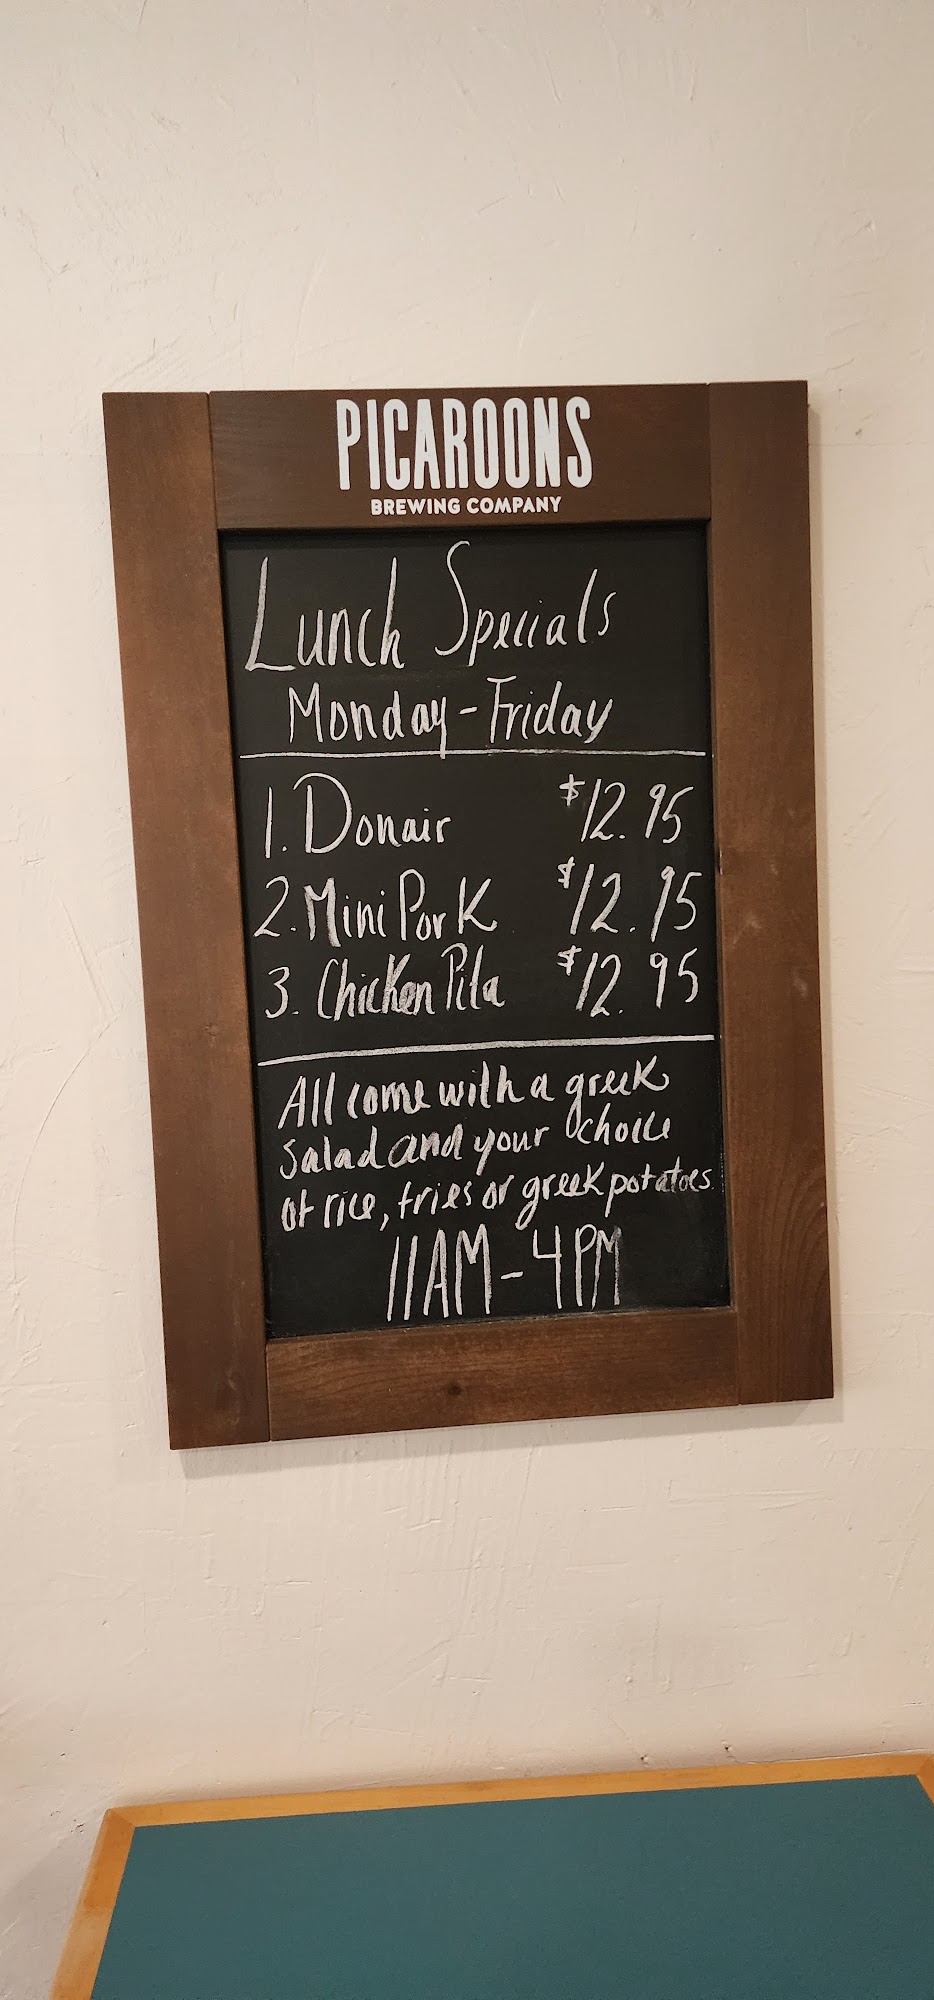 PICAROONS
BREWING COMPANY
Lunch Specials
Monday - Friday
1. Donair $12.95
2. Mini Pork $12.95
3. Chicken Pita $12.95
All come with a greek
salad and your choice
of rice, fries or greek potatoes
11AM - 4PM